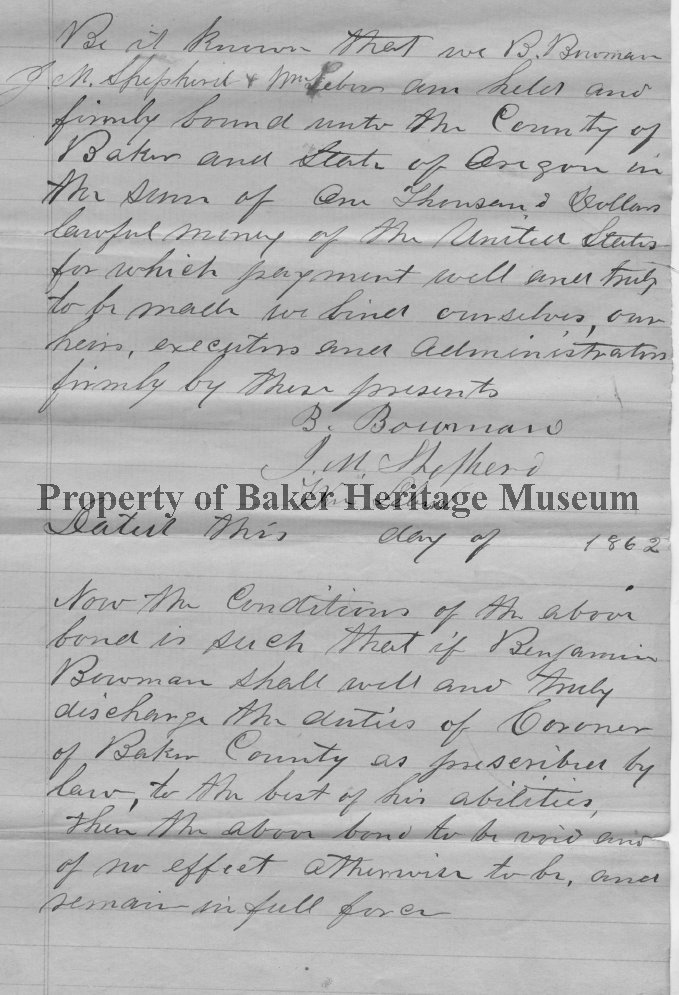 Be it known that we B. Bowman
J. M. Shepherd & Wm Lebow am held and
firmly bound unto the County of
Baker and State of Oregon in
the sum of One Thousand Dollars
lawful money of the United States
for which payment well and truly
to be made we bind ourselves, our
heirs, executors and administrators
firmly by these presents
B. Bowman
J. M. Shepherd
Property of Baker Heritage Museum
Dated this day of 1862
Now the Conditions of the above
bond is such that if Benjamin
Bowman shall well and truly
discharge the duties of Coroner
of Baker County as prescribed by
law, to the best of his abilities,
then the above bond to be void and
of no effect otherwise to be, and
remain in full force